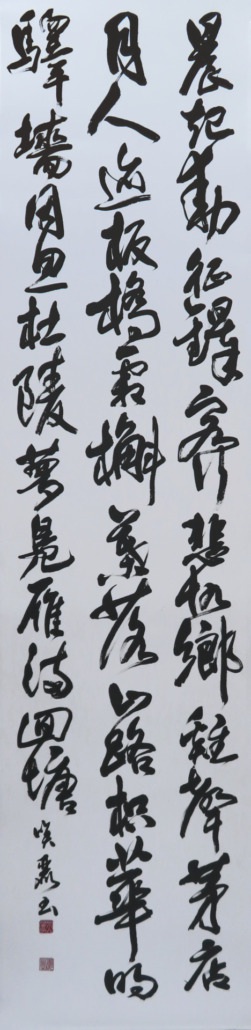 晨起動征鐸客行悲故鄉雞聲茅店
月人迹板橋霜槲葉落山路枳華明
驛墻因思杜陵夢鳧雁滿迴塘